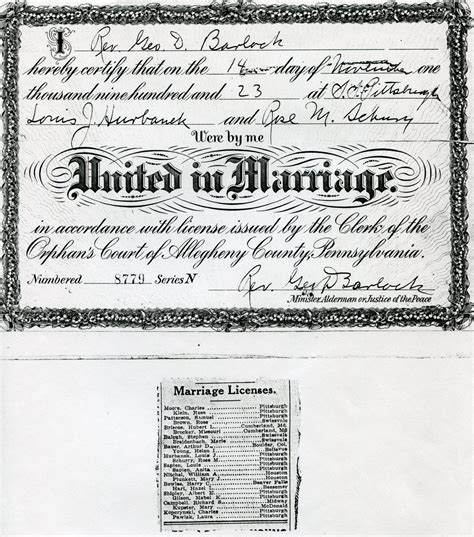 I Rev. Geo. D. Barlock
hereby certify that on the 14 day of November one
thousand nine hundred and 23 at S.S. Pittsburgh
Louis J. Hurbanek and Rose M. Schury
Were by me
United in Marriage.
in accordance with license issued by the Clerk of the
Orphan's Court of Allegheny County, Pennsylvania.
Numbered 8779 Series N Rev. Geo. D. Barlock
Minister, Alderman or Justice of the Peace
Marriage Licenses.
Moore, Charles Pittsburgh
Klein, Rose Pittsburgh
Patterson, Samuel Pittsburgh
Brown, Rose Swissvale
Briscoe, Hobert L. Cumberland, Md.
Brocker, Missouri Cumberland, Md
Balogh, Stephen Swissvale
Breidenbach, Marie Swissvale
Bauer, Arthur D. Boulder, Col.
Young, Helen I. Bellevue
Hurbanek, Louis J. Pittsburgh
Schurry, Rose M. Pittsburgh
Sapien, Louis Pittsburgh
Sabien, Anita Pittsburgh
Nitchel, William A. Houston
Plunkett, Mary J. Houston
Bowles, Harry C. Beaver Falls
Hart, Hazel I. Bessemer
Shipley, Albert E. Pittsburgh
Gibson, Mabel E. Pittsburgh
Campbell, Richard S. Midway
Kupster, Mary McDonald
Koperynski, Charles Pittsburgh
Pawluk, Laura Pittsburgh